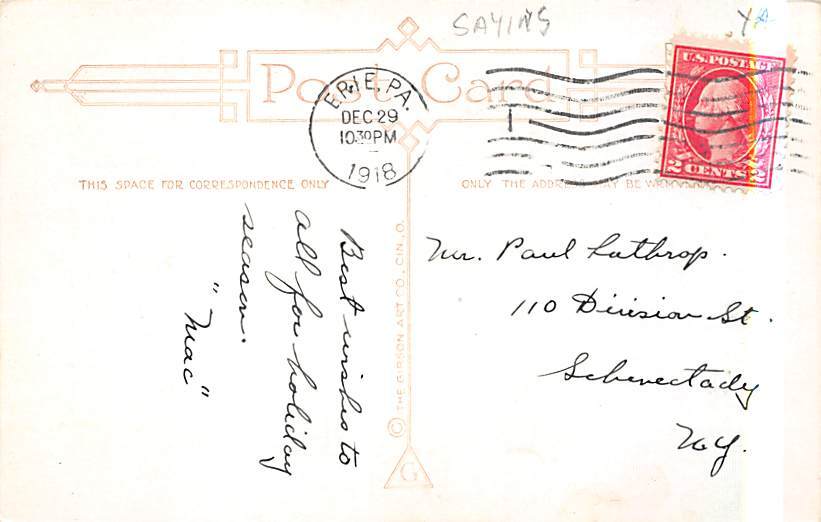 SAYINS
Post Card
ERIE, PA.
DEC 29
10 30 PM
1918
U.S. POSTAGE
2 CENTS 2
THIS SPACE FOR CORRESPONDENCE ONLY
ONLY THE ADDRESS MAY BE
Best wishes to
all for holiday
season.
"Mac"
© THE GIBSON ART CO., CIN., O.
G
Mr. Paul Lathrop.
110 Division St.
Schenectady
N.Y.